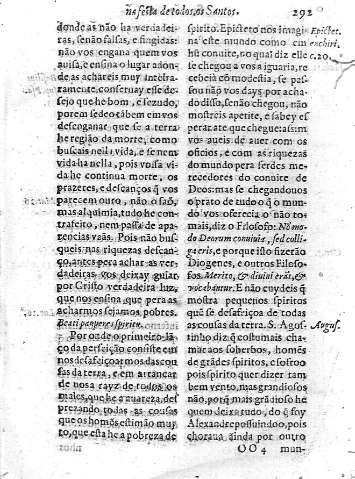 na festa de todos os Santos. 292
donde as não ha verdadei-
ras, senão falsas, e fingidas:
não vos engana quem vos
auisa, e ensina o lugar adon-
de as achareis muy inteira-
ramente. conseruay esse de-
sejo que he bom, e sezudo,
porem sedeo cabem em vos
desenganar que se a terra
he região da morte, como
buscais nella vida, e se nem
vida ha nella, pois vossa vi-
da he continua morte, os
prazeres, e descanços q̃ vos
parecem ouro, não o saõ,
mas alquimia, tudo he con-
trafeito, nem passa de apa-
rencias vaãs. Pois não bus-
queis nas riquezas descan-
ço, antes pera achar as ver-
dadeiras vos deixay guiar
por Christo verdadeira luz,
que nos ensina que pera as
acharmos sejamos pobres.
Beati pauperes spiritu.
Por onde o primeiro la-
ço da perseição consiste em
nos desafeiçoarmos das cou-
sas da terra, e em arrancar
de nosa rayz de todos os
males, que he a auareza, des
prezando todas as cousas
que os homẽs estimão muy
to, que esta he a pobreza de
spirito. Epicteto nos imagi
na este mundo como em
hũ conuite, no qual diz elle
se chegou a vos a iguaria, re
cebeia cõ modestia, se pas-
sou não vos days por acha-
do disso, se não chegou, não
mostreis apetite, e sabey es
perar ate que chegue: assi m
vos aueis de auer com os
oficios, e com as riquezas
do mundo pera serdes me-
recedores do conuite de
Deos: mas se chegandouos
o prato de tudo o q̃ o mun-
do vos oferecia o não to-
mais, diz o Filosofo: Nõ mo-
do Deorum conuiua, sed collle-
ga eris, e porque isso fizerão
Diogenes, e outros Filoso-
fos. Merito, & diuini erãt, &
vocabantur. E não cuydeis q̃
mostra pequenos spiritos
quẽ se desafeiçoa de todas
as cousas da terra. S. Agos-
tinho diz q̃ costumais cha-
mar aos soberbos, homẽs
de grãdes spiritos, e só foo
pois spirito quer dizer tam
bem vento, mas grandiosos
não, porq̃ mais grãdioso he
quem deixa tudo, do q̃ foy
Alexandre possuindoo, pois
choraua ainda por outro
OO 4 mun-
Epictet.
enchiri.
c. 20.
Augus.